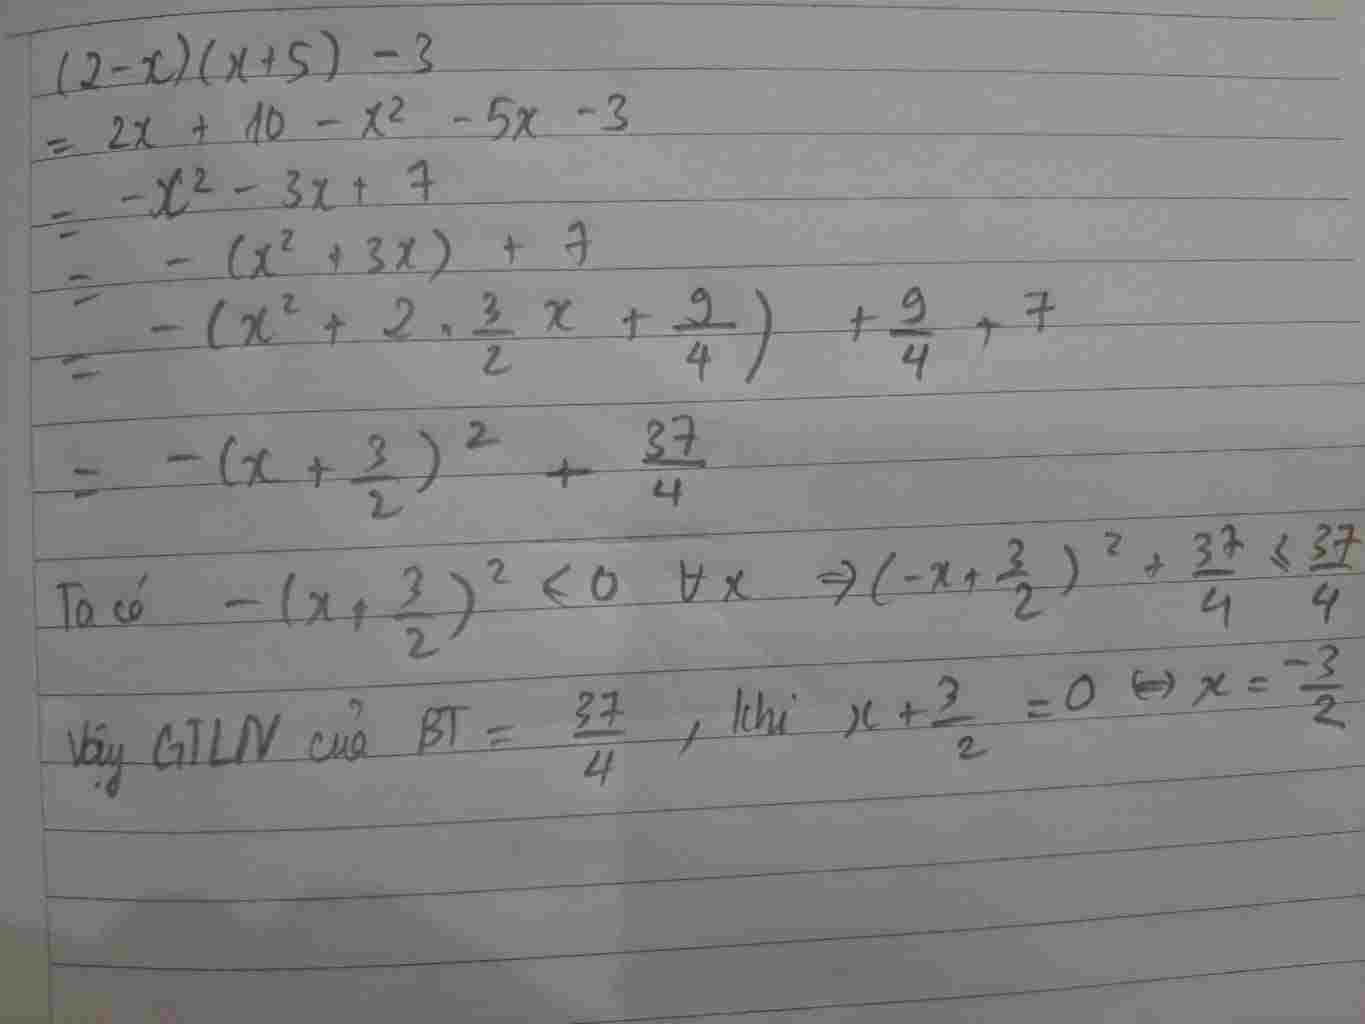 (2-x)(x+5) -3
= 2x + 10 - x² - 5x - 3
= -x² - 3x + 7
= - (x² + 3x) + 7
= - (x² + 2 . 3/2 x + 9/4) + 9/4 + 7
= - (x + 3/2)² + 37/4
Ta có - (x + 3/2)² < 0 ∀x ⇒ (-x + 3/2)² + 37/4 ≤ 37/4
Vậy GTLN của BT = 37/4 , khi x + 3/2 = 0 ⇔ x = -3/2